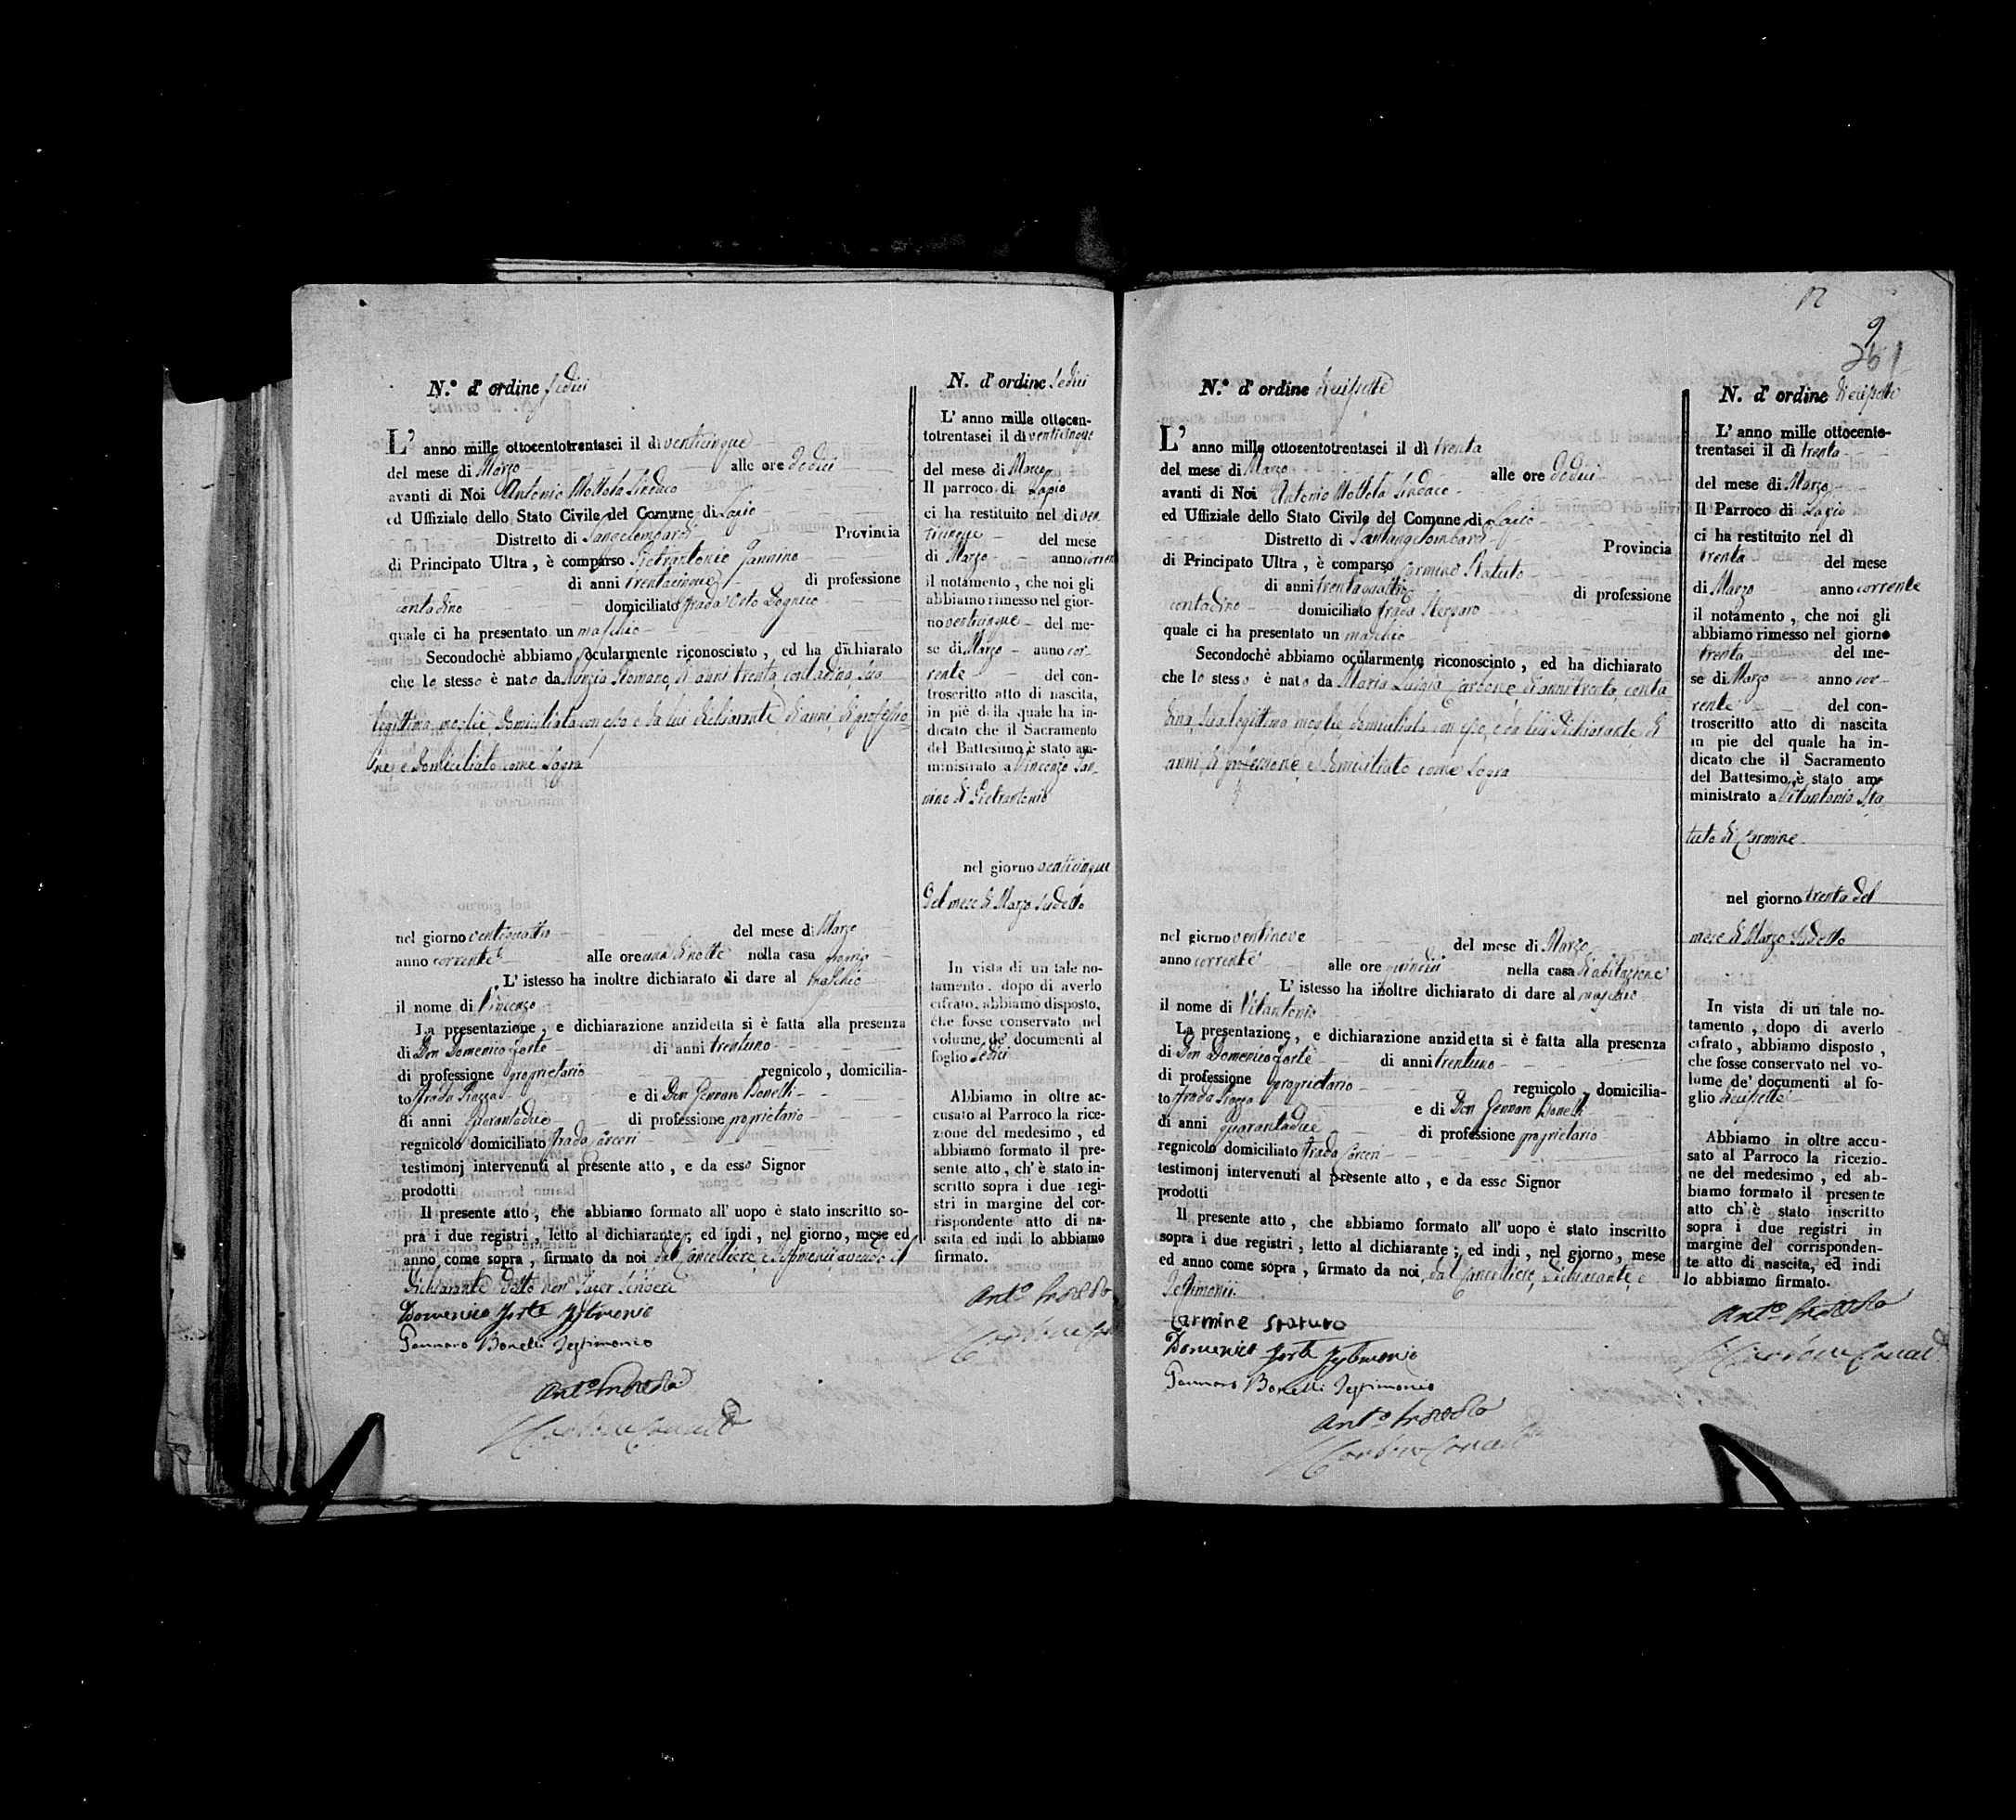 N.° d'ordine Sedici
L' anno mille ottocentotrentasei il dì venticinque
del mese di Marzo alle ore dodici
avanti di Noi Antonio Mottola Sindaco
ed Uffiziale dello Stato Civile del Comune di Lapio
Distretto di Santangelombardi Provincia
di Principato Ultra, è comparso Pietrantonio Jannino
di anni trentacinque di professione
contadino domiciliato strada Orto
quale ci ha presentato un maschio
Secondochè abbiamo ocularmente riconosciuto, ed ha dichiarato
che lo stesso è nato da Nunzia Romano, di anni trenta, contadina, sua
legittima moglie domiciliata con esso e da lui dichiarante di anni, di professio-
ne, e domiciliato come sopra
nel giorno ventiquattro del mese di Marzo
anno corrente alle ore una di notte nella casa propria
L' istesso ha inoltre dichiarato di dare al maschio
il nome di Vincenzo
La presentazione, e dichiarazione anzidetta si è fatta alla presenza
di Don Domenico Forte di anni trentuno
di professione proprietario regnicolo, domicilia-
to strada Piazza e di Don Gennaro Bonelli
di anni quarantadue di professione proprietario
regnicolo domiciliato strada Carceri
testimonj intervenuti al presente atto, e da esso Signor
prodotti
Il presente atto, che abbiamo formato all' uopo è stato inscritto so-
pra i due registri, letto al dichiarante; ed indi, nel giorno, mese ed
anno come sopra, firmato da noi dal Cancelliere, e Testimonii avendo il
Dichiarante detto non saper scrivere
Domenico Forte Testimonio
Gennaro Bonelli Testimonio
Ant.° Mottola
N. d'ordine Sedici
L' anno mille ottocen-
totrentasei il dì venticinque
del mese di Marzo
Il parroco di Lapio
ci ha restituito nel dì ven
ticinque del mese
di Marzo anno corrente
il notamento, che noi gli
abbiamo rimesso nel gior-
no venticinque del me-
se di Marzo anno cor-
rente del con-
troscritto atto di nascita,
in piè della quale ha in-
dicato che il Sacramento
del Battesimo è stato am-
ministrato a Vincenzo Jan-
nino di Pietrantonio
nel giorno venticinque
del mese di Marzo sudetto
In vista di un tale no-
tamento, dopo di averlo
cifrato, abbiamo disposto,
che fosse conservato nel
volume de' documenti al
foglio Sedici
Abbiamo in oltre ac-
cusato al Parroco la rice-
zione del medesimo, ed
abbiamo formato il pre-
sente atto, ch' è stato in-
scritto sopra i due regi-
stri in margine del cor-
rispondente atto di na-
scita ed indi lo abbiamo
firmato.
Ant.° Mottola
12
9
261
N.° d'ordine Decisette
L' anno mille ottocentotrentasei il dì trenta
del mese di Marzo alle ore dodici
avanti di Noi Antonio Mottola Sindaco
ed Uffiziale dello Stato Civile del Comune di Lapio
Distretto di Santangelombardi Provincia
di Principato Ultra, è comparso Carmine Statuto
di anni trentaquattro di professione
contadino domiciliato strada
quale ci ha presentato un maschio
Secondochè abbiamo ocularmente riconosciuto, ed ha dichiarato
che lo stesso è nato da Maria Luigia Carbone di anni trenta, conta
dina, sua legittima moglie domiciliata con esso, e da lui dichiarante di
anni, di professione, e domiciliato come sopra
nel giorno ventinove del mese di Marzo
anno corrente alle ore quindici nella casa d'abitazione
L' istesso ha inoltre dichiarato di dare al maschio
il nome di Vitantonio
La presentazione, e dichiarazione anzidetta si è fatta alla presenza
di Don Domenico Forte di anni trentuno
di professione proprietario regnicolo, domicilia-
to strada Piazza e di Don Gennaro Bonelli
di anni quarantadue di professione proprietario
regnicolo domiciliato strada Carceri
testimonj intervenuti al presente atto, e da esso Signor
prodotti
Il presente atto, che abbiamo formato all' uopo è stato inscritto
sopra i due registri, letto al dichiarante; ed indi, nel giorno, mese
ed anno come sopra, firmato da noi, dal Cancelliere, Dichiarante, e
Testimonii.
Carmine Statuto
Domenico Forte Testimonio
Gennaro Bonelli Testimonio
Ant.° Mottola
N. d'ordine Decisette
L' anno mille ottocento-
trentasei il dì trenta
del mese di Marzo
Il Parroco di Lapio
ci ha restituito nel dì
trenta del mese
di Marzo anno corrente
il notamento, che noi gli
abbiamo rimesso nel giorno
trenta del me-
se di Marzo anno cor-
rente del con-
troscritto atto di nascita
in pie del quale ha in-
dicato che il Sacramento
del Battesimo è stato am-
ministrato a Vitantonio Sta
tuto di Carmine
nel giorno trenta del
mese di Marzo sudetto
In vista di un tale no-
tamento, dopo di averlo
cifrato, abbiamo disposto,
che fosse conservato nel vo-
lume de' documenti al fo-
glio decisette
Abbiamo in oltre accu-
sato al Parroco la ricezio-
ne del medesimo, ed ab-
biamo formato il presente
atto ch' è stato inscritto
sopra i due registri in
margine del corrisponden-
te atto di nascita, ed indi
lo abbiamo firmato.
Ant.° Mottola